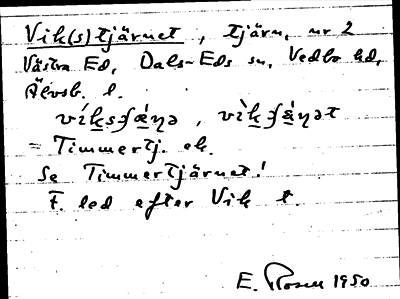 Vik(s)tjärnet, tjärn, nr 2
Västra Ed, Dals-Eds sn, Vedbo hd,
Älvsb. l.
= Timmertj. ek.
Se Timmertjärnet!
F. led efter Vik t.
E. Rosen 1950